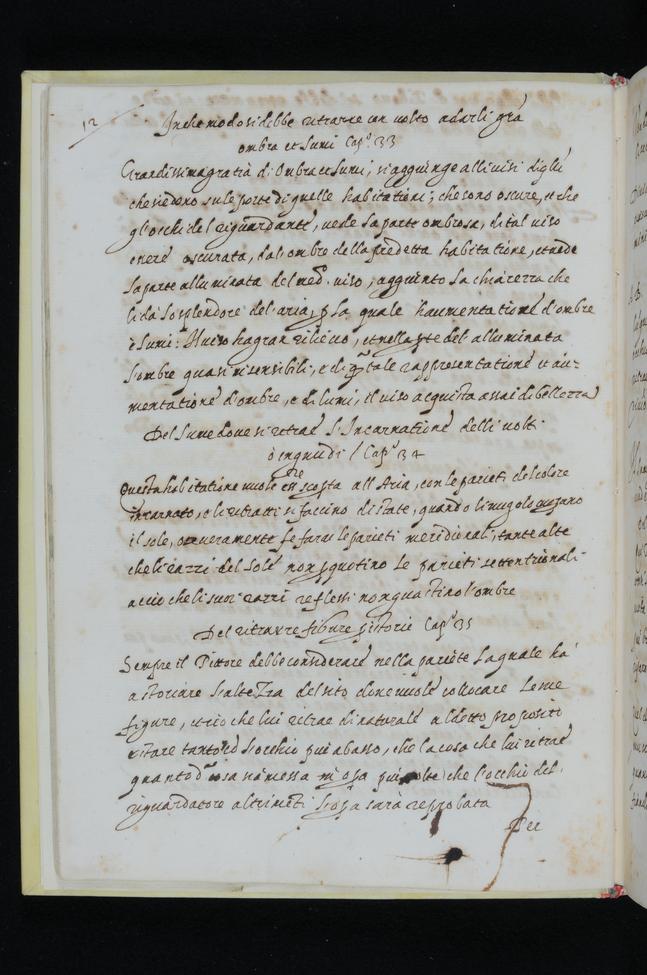 12
In che modo si debbe ritrarre con volto a darli grā
ombra et lumi Cap.º 33
Grandissima gratia di Ombra et lumi, si aggiunge alli visi di q̄lli
che sedono su le porte di quelle habitationi; che sono oscure, et che
gl'occhi del riguardante, vede la parte ombrosa, di tal viso
essere oscurata, dal ombre della predetta habitatione, et vede
la parte alluminata del med.º viso, aggiunto la chiarezza che
li dà lo splendore del'aria, p̱ la quale haumentatione d'ombre
e lumi: Il viso ha gran rilievo, et nella p̱te del alluminata
l'ombre quasi insensibili, e di q̄sta tale rappresentatione et au-
mentatione d'ombre, e di lumi, il viso acquista assai di bellezza
Del lume dove si ritrae l'Incarnatione delli volti
o ingnudi / Cap.º 34
Questa habitatione vuole essere scop̱ta all'Aria, con le pariete de colore
incarnato, e li ritratti si faccino di state, quando li nugoli cuprano
il sole, o veramente se farai le parieti meridionali, tante alte
che li razzi del sole non p̱quotino le parieti settentrionali
accio che li suoi razzi reflessi non guastino l'ombre
Del ritrarre figure p̱ istorie Cap.º 35
Sempre il Pittore debbe considerare nella pariete la quale ha
a istoriare l'altezza del sito dove vuole collocare le sue
figure, et cio che lui ritrae di naturale a detto proposito
e stare tanto l'occhio piu abasso, che la cosa che lui ritrae
quanto d. cosa sia messa in op̱a piu alto che l'occhio del
riguardatore altrimeti l'op̱a sarà reprobata
Per